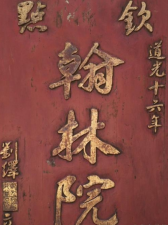 欽點
道光十六年
翰林院
劉繹